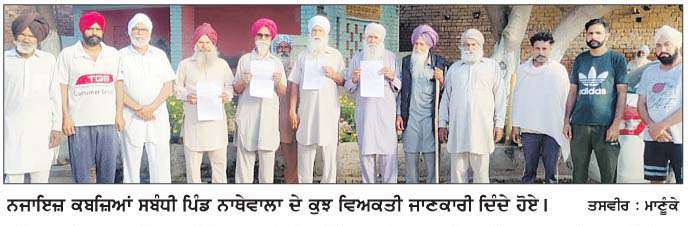 TGS
Customer
adidas
ਨਜਾਇਜ਼ ਕਬਜ਼ਿਆਂ ਸਬੰਧੀ ਪਿੰਡ ਨਾਥੇਵਾਲਾ ਦੇ ਕੁਝ ਵਿਅਕਤੀ ਜਾਣਕਾਰੀ ਦਿੰਦੇ ਹੋਏ। ਤਸਵੀਰ : ਮਾਣੂੰਕੇ